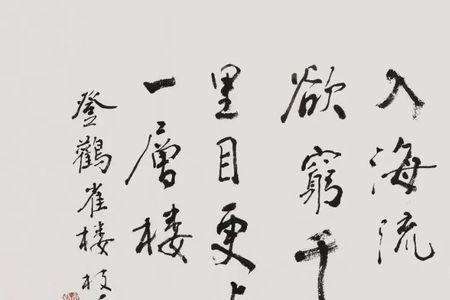 入海流
欲窮千
里目更上
一層楼
登鸛雀楼